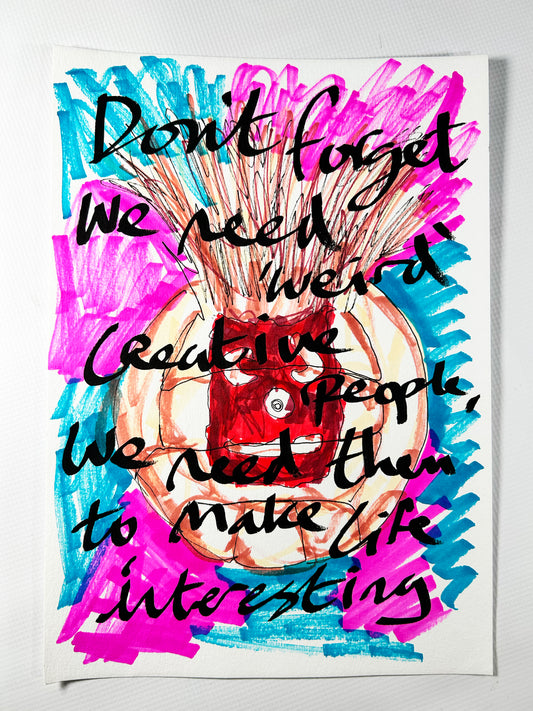 Don't forget
We need
'weird'
Creative
People,
We need them
to make life
interesting